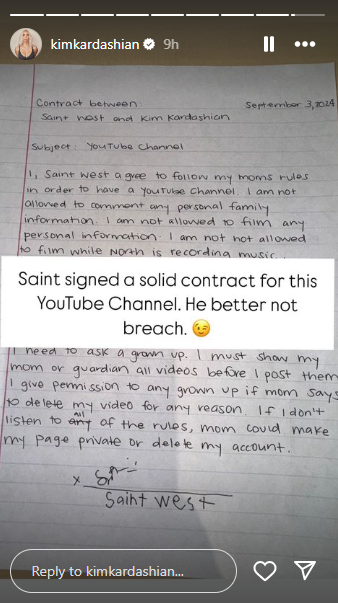 kimkardashian 9h
Contract between September 3, 2024
Saint West and Kim Kardashian
Subject: YouTube Channel
I, Saint West agree to follow my moms rules
in order to have a YouTube Channel. I am not
allowed to comment any personal family
information. I am not allowed to film any
personal information. I am not not allowed
to film while North is recording music.
Saint signed a solid contract for this
YouTube Channel. He better not
breach. 😉
I need to ask a grown up. I must show my
mom or guardian all videos before I post them
I give permission to any grown up if mom says
to delete my video for any reason. If I don't
listen to any all of the rules, mom could make
my page private or delete my account.
x
Saint West
Reply to kimkardashian...